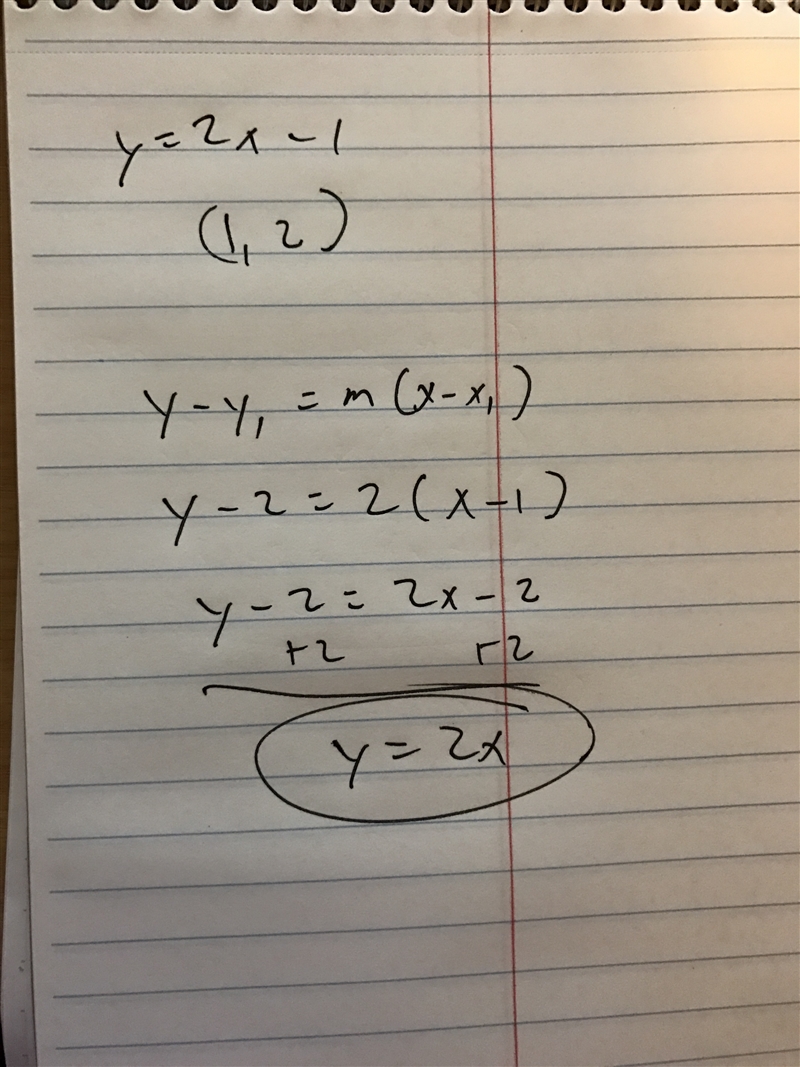 y = 2x - 1
(1, 2)
y - y₁ = m (x - x₁)
y - 2 = 2 ( x - 1 )
y - 2 = 2x - 2
+2 +2
y = 2x